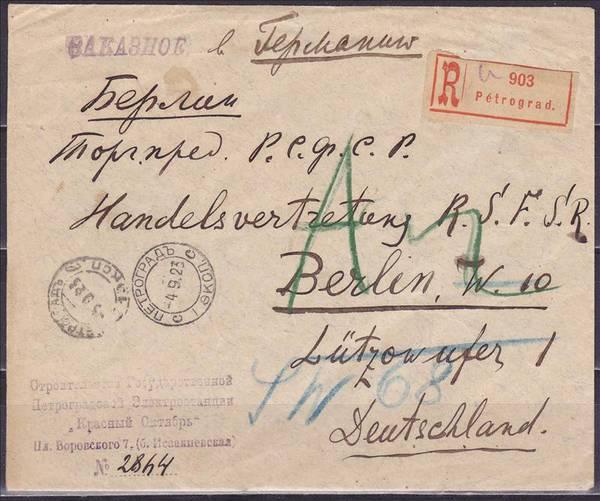 ЗАКАЗНОЕ в Германию
R 903
Pétrograd.
Берлин
Торгпред. Р.С.Ф.С.Р.
Handelsvertretung R.S.F.S.R.
Berlin, W. 10
Lützowufer 1
Deutschland.
SW 68
ПЕТРОГРАДЪ
-4.9.23
Строительство Государственной
Петроградской Электростанции
„Красный Октябрь"
Пл. Воровского 7, (б. Исаакиевская)
№ 2844